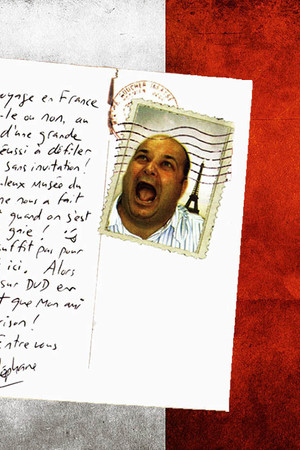 oyage en France
le ou non, au
d'une grande
éussi à défiler
sans invitation!
uleux Museo du
ne nous a fait
quand on s'est
gnie!
uffit pas pour
ici. Alors
sur DVD en
t que Mon ami
rison!
Entre vous
éphane